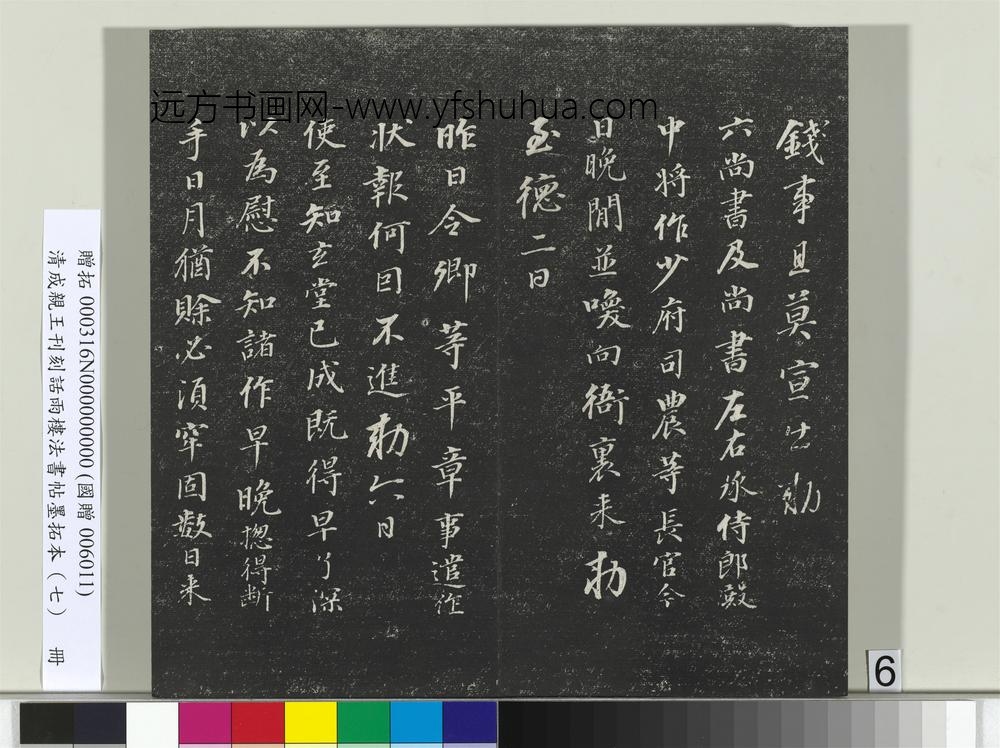 远方书画网-www.yfshuhua.com
錢事且莫宣出勅
六尚書及尚書左右丞侍郎殿
中將作少府司農等長官今
日晚間並喚向衙裏来勅
至德二日
昨日令卿等平章事遣作
狀報何因不進勅六日
使至知玄堂已成既得早了深
以為慰不知諸作早晚揔得斷
手日月猶賒必須牢固數日来
贈拓 000316N000000000(國贈 006011)
清成親王刊刻詒雨樓法書帖墨拓本(七) 冊
6